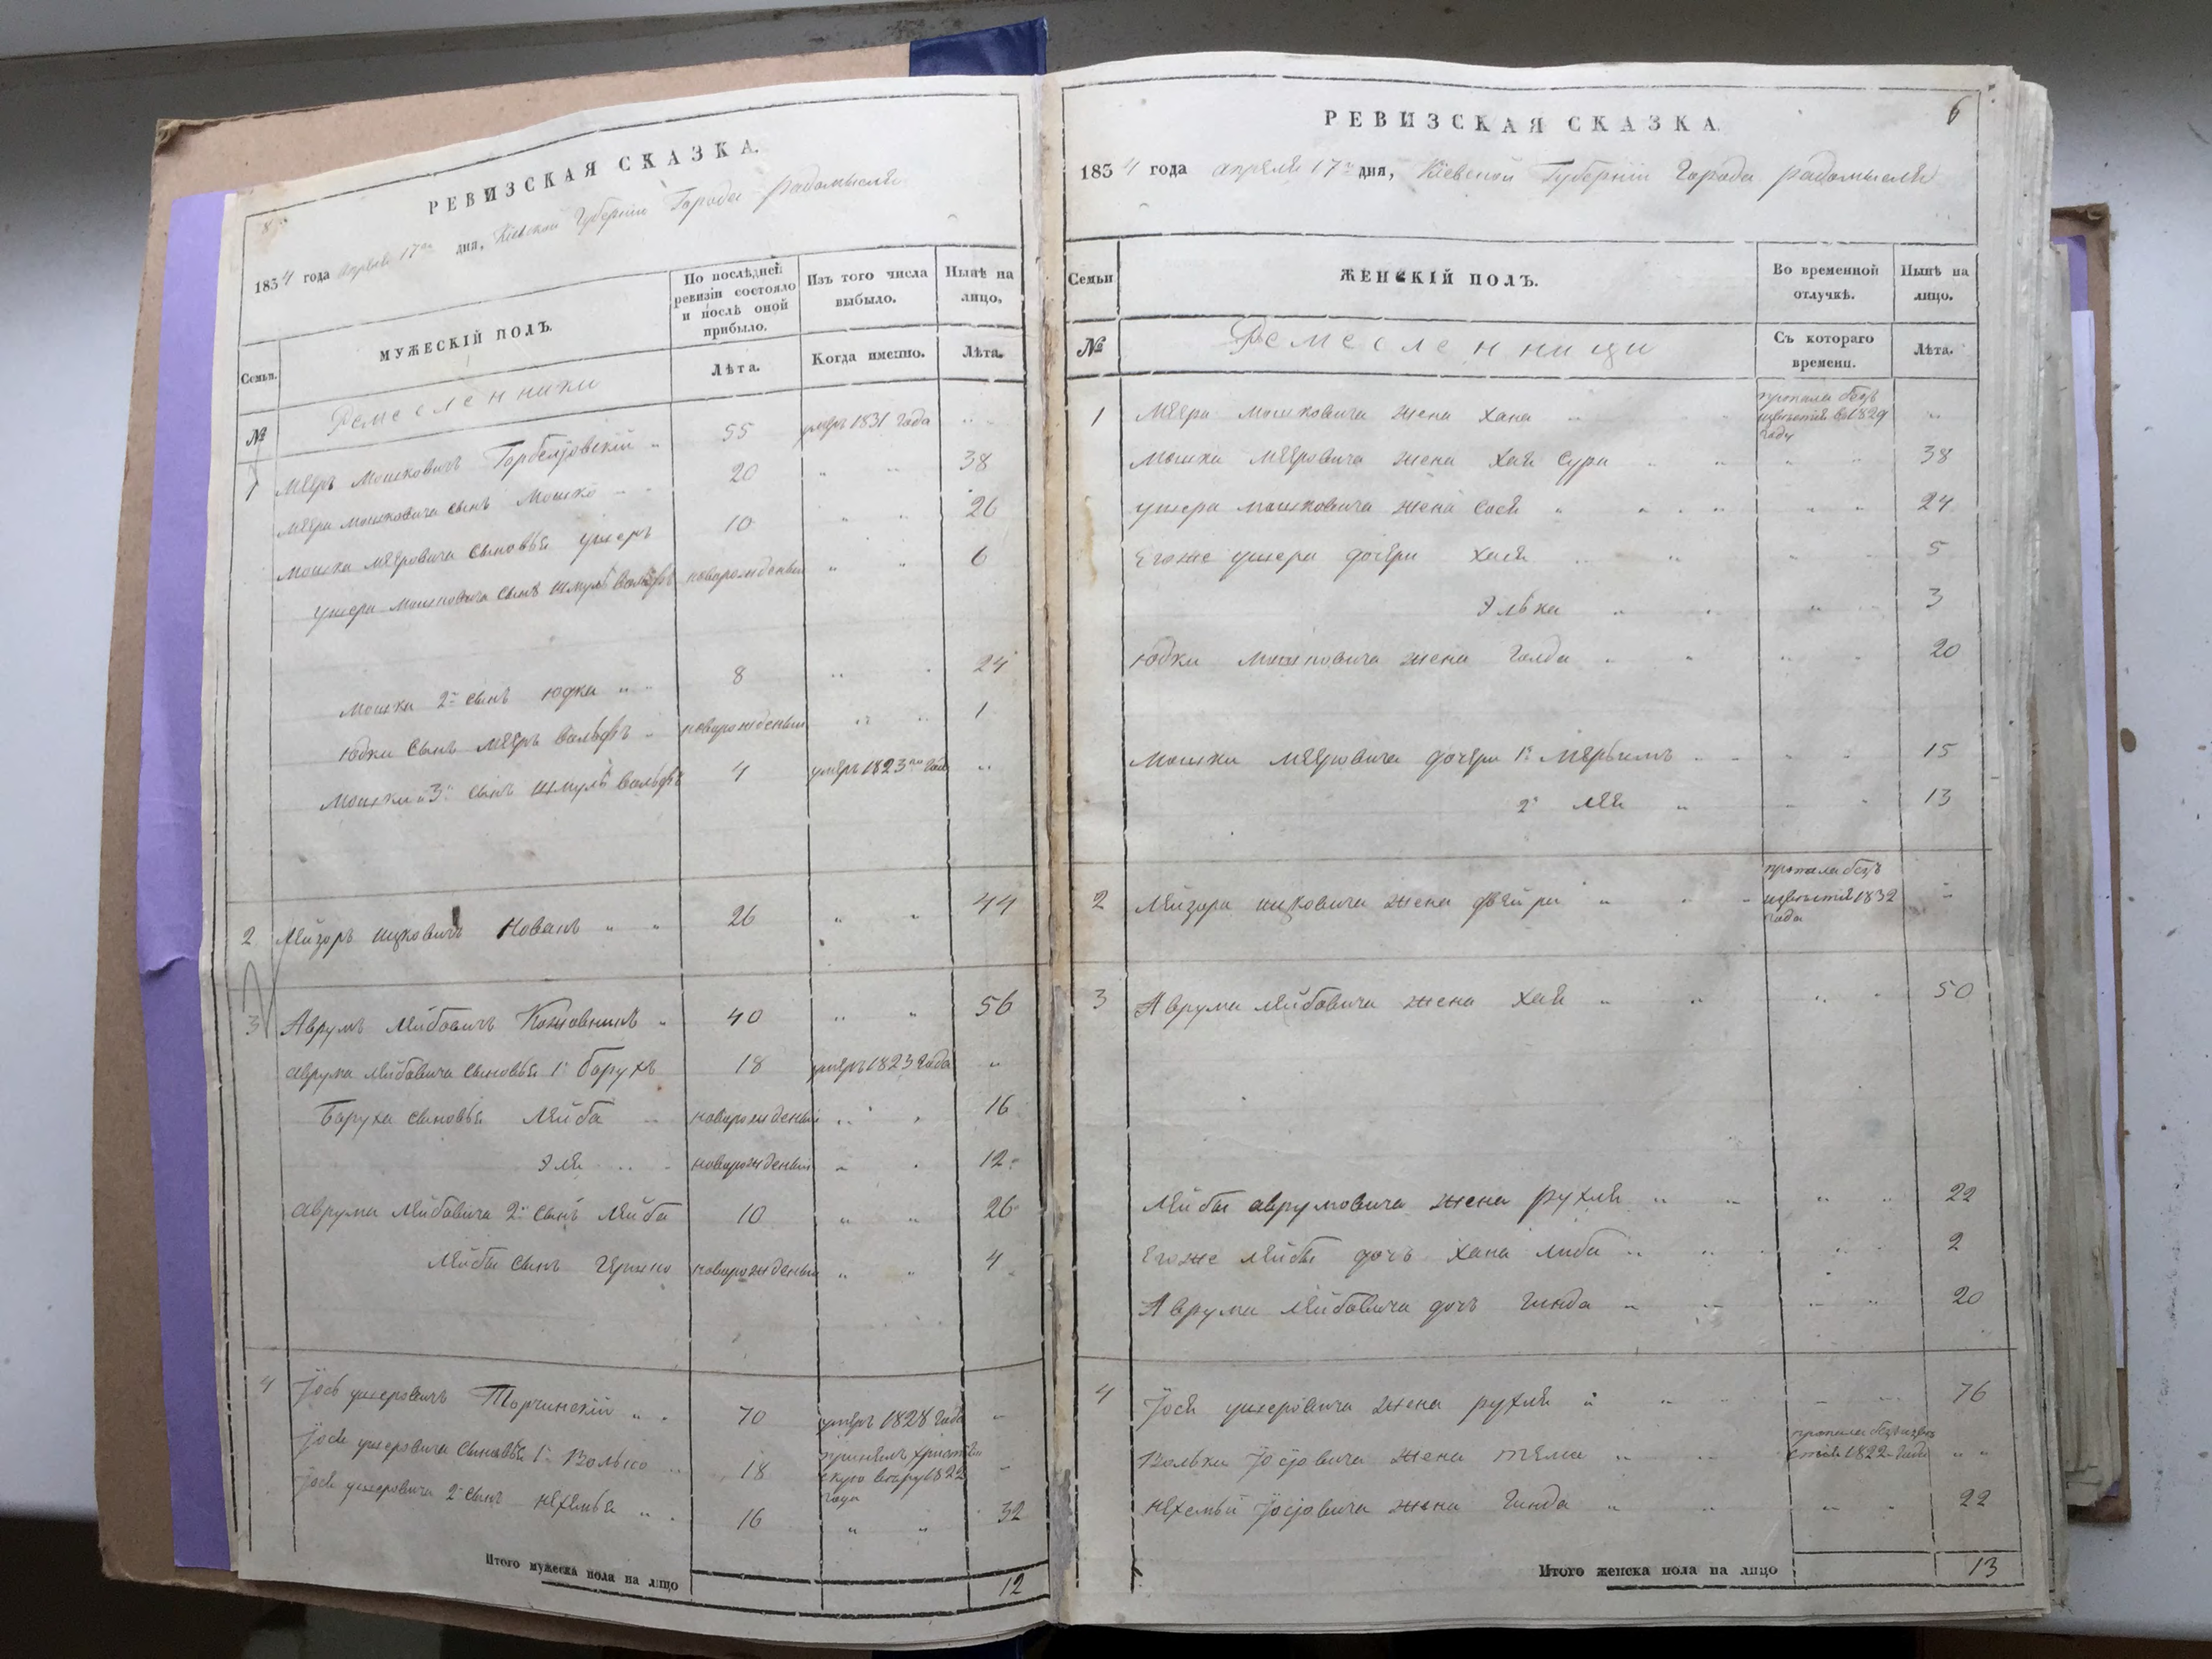 РЕВИЗСКАЯ СКАЗКА.
1834 года апреля 17го дня, Кіевской Губерніи Города радомысля
Семьи.
МУЖЕСКІЙ ПОЛЪ.
По послѣдней ревизіи состояло и послѣ оной прибыло.
Изъ того числа выбыло.
Нынѣ на лицо.
№
Ремесленники
Лѣта.
Когда именно.
Лѣта.
1 Мееръ Мошковичъ 55 умеръ 1831 года
Меера Мошковича сынъ Мошко 20 38
Мошки Мееровича сыновья ушеръ 10 26
ушера Мошковича сынъ шмуль вольфъ новорожденый 6
Мошки 2й сынъ юдка 8 24
юдки сынъ Мееръ вольфъ новорожденый 1
Мошки 3й сынъ шмуль вольфъ 4 умеръ 1823го года
2 Лейзоръ ицковичъ 26 44
3 Аврумъ Лейбовичъ 40 56
аврума Лейбовича сыновья 1й Барухъ 18 умеръ 1823 года
Баруха сыновья Лейба новорожденый 16
Эля новорожденый 12
аврума Лейбовича 2й сынъ Лейба 10 26
Лейбы сынъ Гершко новорожденый 4
4 Іось ушеровичъ Торчинскій 70 умеръ 1828 года
Іося ушеровича сыновья 1й Волько 18 принялъ христіанскую вѣру 1822 года
Іося ушеровича 2й сынъ нехемья 16 32
Итого мужеска пола на лицо 12
6
РЕВИЗСКАЯ СКАЗКА.
1834 года апреля 17го дня, Кіевской Губерніи Города радомысля
Семьи
ЖЕНСКІЙ ПОЛЪ.
Во временной отлучкѣ.
Нынѣ на лицо.
№
Ремесленници
Съ котораго времени.
Лѣта.
1 Меера мошковича жена хана пропала безъ извѣстія въ 1829 году
Мошки Мееровича жена хая сура 38
ушера мошковича жена сося 24
Егоже ушера дочери хася 5
Элька 3
юдки мошковича жена голда 20
мошки Мееровича дочери 1я Мерьямъ 15
2я Лея 13
2 Лейзора ицковича жена фейга пропала безъ извѣстія 1832 года
3 Аврума Лейбовича жена хая 50
Лейбы аврумовича жена рухля 22
Егоже Лейбы дочь хана либа 2
Аврума Лейбовича дочь гинда 20
4 Іося ушеровича жена рухля 76
Вольки Іосіовича жена тема пропала безъ извѣстія 1822 года
нехемьи Іосіовича жена гинда 22
Итого женска пола на лицо 13